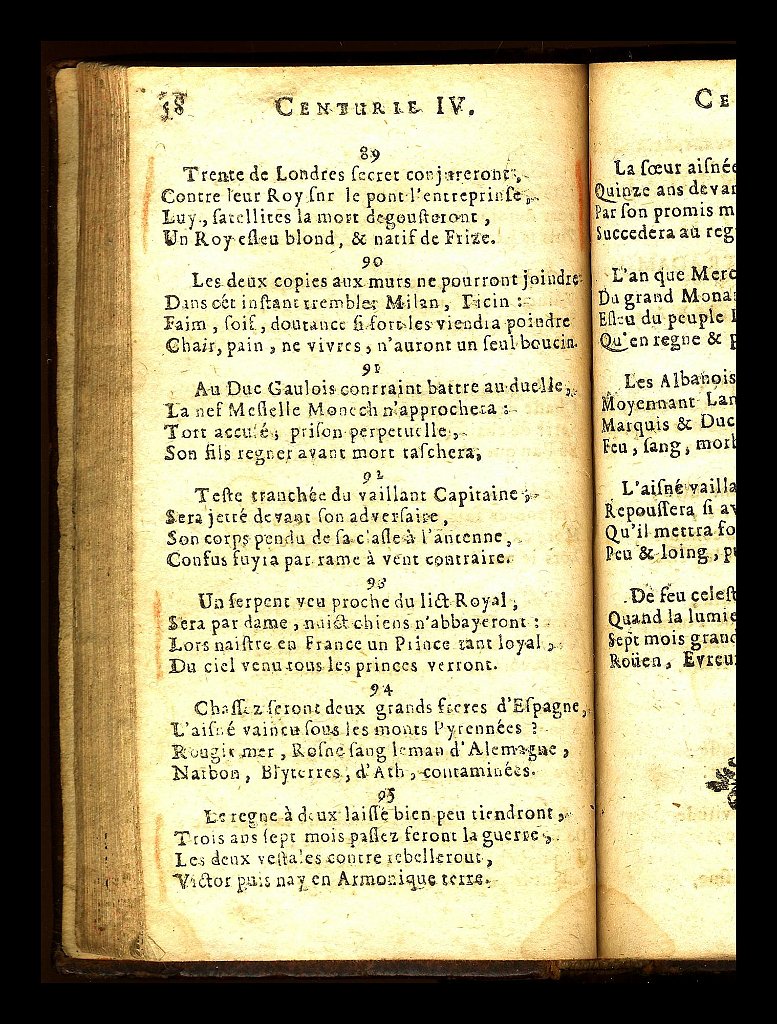 58 CENTURIE IV.
89
Trente de Londres ſecret conjureront,
Contre leur Roy ſnr le pont l'entreprinſe,
Luy, ſatellites la mort degouſteront,
Un Roy eſleu blond, & natif de Frize.
90
Les deux copies aux murs ne pourront joindre
Dans cét inſtant trembler Milan, Ticin :
Faim, ſoif, doutance ſi fort les viendra poindre
Chair, pain, ne vivres, n'auront un ſeul boucin.
91
Au Duc Gaulois contraint battre au duelle,
La nef Meſlelle Monech n'approchera :
Tort accuſé, priſon perpetuelle,
Son fils regner avant mort taſchera,
92
Teſte tranchée du vaillant Capitaine,
Sera jetté devant ſon adverſaire,
Son corps pendu de ſa claſſe à l'antenne,
Confus fuyra par rame à vent contraire.
93
Un ſerpent veu proche du lict Royal,
Sera par dame, nuict chiens n'abbayeront :
Lors naiſtre en France un Prince tant loyal,
Du ciel venu tous les princes verront.
94
Chaſſez ſeront deux grands freres d'Eſpagne,
L'aiſné vaincu ſous les monts Pyrennées :
Rougir mer, Roſne ſang leman d'Alemagne,
Narbon, Blyterres, d'Ath, contaminées.
95
Le regne à deux laiſſé bien peu tiendront,
Trois ans ſept mois paſſez feront la guerre,
Les deux veſtales contre rebelleront,
Victor puis nay en Armonique terre.
CE
La ſœur aiſnée
Quinze ans devan
Par ſon promis m
Succedera au reg
L'an que Merc
Du grand Monar
Eſleu du peuple
Qu'en regne &
Les Albanois
Moyennant Lan
Marquis & Duc
Feu, ſang, morb
L'aiſné vailla
Repouſſera ſi av
Qu'il mettra fo
Peu & loing, p
De feu celeſt
Quand la lumie
Sept mois grand
Roüen, Evreu